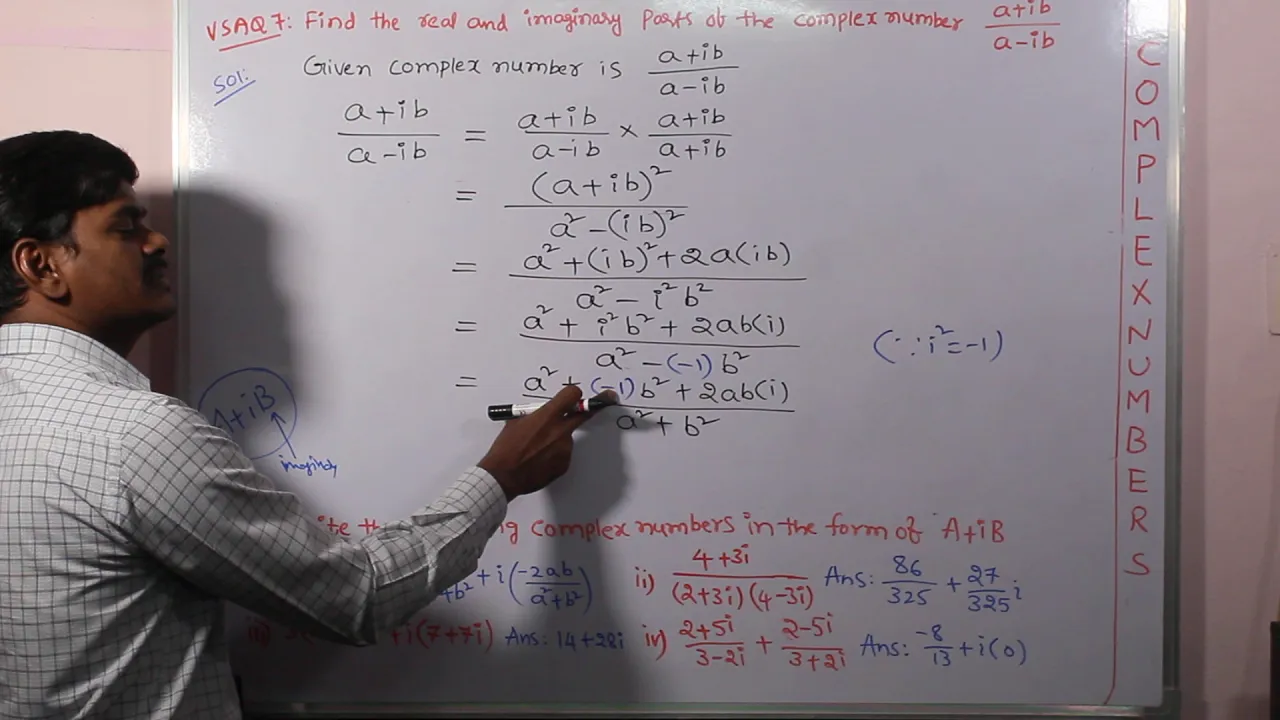 VSAQ 7: Find the real and imaginary parts of the complex number (a+ib)/(a-ib)
Sol: Given complex number is (a+ib)/(a-ib)
(a+ib)/(a-ib) = (a+ib)/(a-ib) × (a+ib)/(a+ib)
= (a+ib)²/(a²-(ib)²)
= (a²+(ib)²+2a(ib))/(a²-i²b²)
= (a²+i²b²+2ab(i))/(a²-(-1)b²) (∵ i²=-1)
= (a²+(-1)b²+2ab(i))/(a²+b²)
A+iB
imaginary
complex numbers in the form of A+iB
+i(-2ab/(a²+b²)) ii) (4+3i)/((2+3i)(4-3i)) Ans: 86/325 + 27/325 i
+i(7+7i) Ans: 14+28i iv) (2+5i)/(3-2i) + (2-5i)/(3+2i) Ans: -8/13 + i(0)
COMPLEX NUMBERS